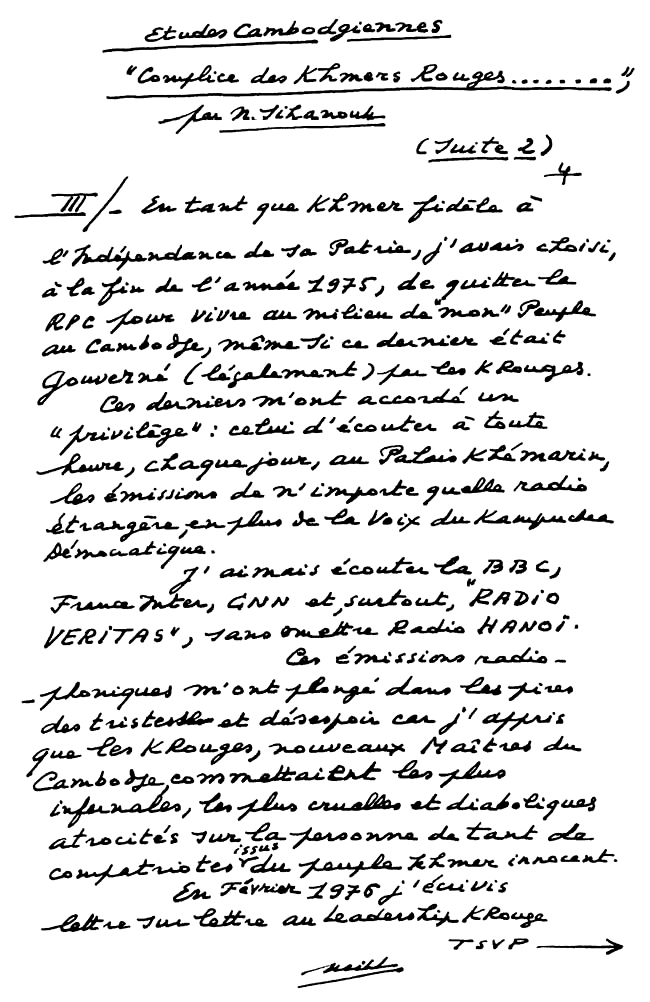 Etudes Cambodgiennes
"Complice des Khmers Rouges........",
par N. Sihanouk
(Suite 2)
4
III/- En tant que Khmer fidèle à
l'Indépendance de sa Patrie, j'avais choisi,
à la fin de l'année 1975, de quitter la
RPC pour vivre au milieu de "mon" Peuple
au Cambodge, même si ce dernier était
gouverné (légalement) par les K Rouges.
Ces derniers m'ont accordé un
"privilège" : celui d'écouter à toute
heure, chaque jour, au Palais Khémarin,
les émissions de n'importe quelle radio
étrangère, en plus de la Voix du Kampuchea
Démocratique.
J'aimais écouter la BBC,
France Inter, GNN et, surtout, "RADIO
VERITAS", sans omettre Radio HANOÏ.
Ces émissions radio-
-phoniques m'ont plongé dans les pires
des tristesses et désespoir car j'appris
que les K Rouges, nouveaux Maîtres du
Cambodge, commettaient les plus
infernales, les plus cruelles et diaboliques
atrocités sur la personne de tant de
compatriotes issus du peuple khmer innocent.
En Février 1976 j'écrivis
lettre sur lettre au Leadership K Rouge
TSVP